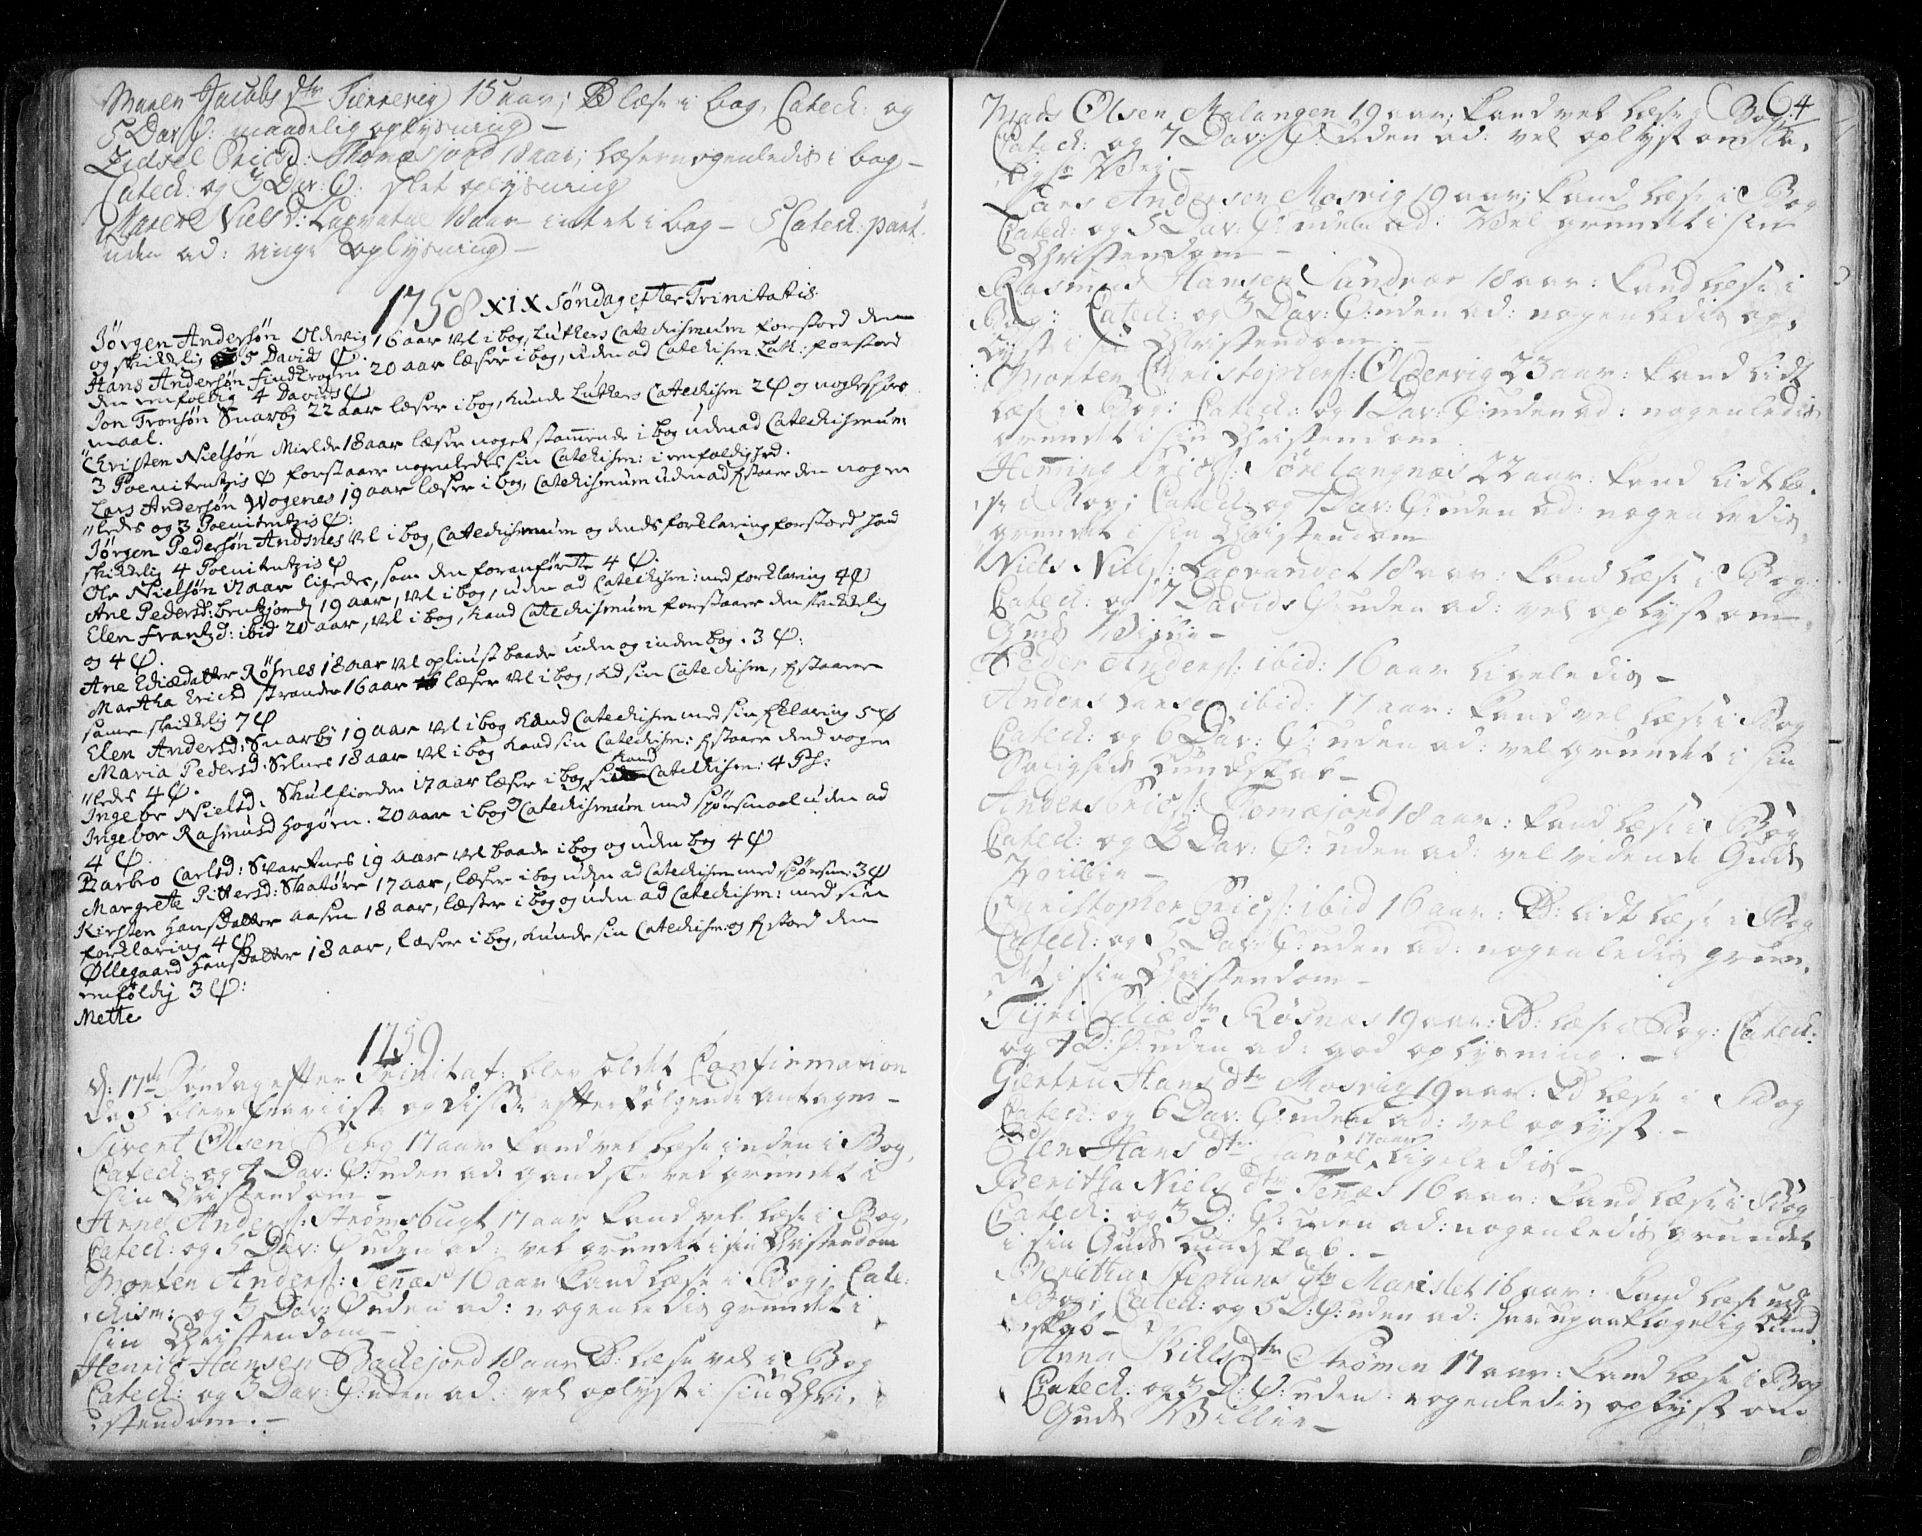 Maren Jacobs dtr Tiennevig 15 aar; læse i bog, Catech: og
5 Dav: φ: maadelig oplysning –
Zidsel Erics d: Thomasjord 18 aar; læser nogenledis i bog –
Catech: og 3 Dav: φ. slet oplysning
Marete Niels d: Laxvatne 18 aar intet i bog – 5 Catech: part:
uden ad: ringe Oplysning –
1758 XIX Søndag efter Trinitatis
Jørgen Andersøn Oldervig 16 aar vel i bog, Luthers Catechismum forstod den
og skikkelig 5 Davids φ.
Hans Andersøn Findkrogen 20 aar læser i bog, uden ad Catechism: Luth: forstod
den eenfoldig 4 Davids φ
Jon Tronsøn Snarbÿ 22 aar læser i bog, kunde Luthers Catechism 2 φ og nogle spørs
maal.
Christen Nielsøn Mielde 18 aar læser noget stammende i bog uden ad Catechismum
3 Poenitentzis φ forstaaer nogenledes sin Catechism: i eenfoldighed.
Lars Andersøn Vogenes 19 aar læser i bog, Catechismum uden ad fstaaer den nogen
ledes og 3 Poenitentzis φ:
Jørgen Pedersøn Andsnes vel i bog, Catechismum og dends forklaring forstod hand
skikkelig 4 Poenitentzis φ
Ole Nielsøn 17 aar ligedes, som den foranførte 4 φ.
Ane Pedersd: bentzjord 19 aar, vel i bog, uden ad Catechism: med forklaring 4 φ
Elen Frantzd: ibid 20 aar, vel i bog, kand Catechismum forstaaer den skikkelig
og 4 φ.
Ane Eliædatter Røsnes 18 aar vel opliust baade uden og inden bog. 3 φ:
Martha Ericsd Stranden 16 aar læser vel i bog, ud sin Catechism, fstaaer
samme skikkelig 7 φ
Elen Andersd: Snarbÿ 19 aar vel i bog kand Catechism med sin fklaring 5 φ
Maria Pedersd: Selnes 18 aar vel i bog kand sin Catechism: fstaaer dend nogen
ledes 4 φ.
Ingebor Nielsd: Skulfiorden 17 aar læser i bog kand sin Catechism: 4 Ps:
Ingebor Rasmusd Hogøren. 20 aar i bog Catechismum med spørsmaal uden ad
4 φ.
Barbro Carlsd: Svartnes 19 aar vel baade i bog og uden bog 4 φ
Margrete Pittersd: Skatøre 17 aar, læser i bog uden ad Catechism med spørsm: 3 φ
Kirsten Hansdatter aasen 18 aar, læser i bog og uden ad Catechism: med sin
forklaring 4 φ
Øllegaard Hansdatter 18 aar, læser i bog, kunde sin Catechism: og fstod den
eenfoldig 3 φ:
Mette
1759
d: 17de Søndag efter Trinitat: blev holdet Confirmation
da disse efterfølgende antagen –
Sivert Olsen Berg 17 aar kand vel læse inden i Bog,
Catech: og 4 Dav: φ: uden ad: gandske vel grundet i
sin Christendom –
Arne Anders: Strømsbugt 17 aar kand vel læse i Bog,
Catech: og 5 Dav: φ uden ad: vel grundet i sin Christendom
Morten Anders: Tenæs 16 aar kand læse i Bog; Cate:
chism: og 3 Dav: φ uden ad: nogenledis grundet i
sin Christendom –
Henric Hansen Bakejord 18 aar K: læse vel i Bog
Catech: og 3 Dav: φ: uden ad: vel oplyst i sin Chri:
stendom. –
64
Mads Olsen Malangen 19 aar; kand vel læse i Bog
Catech: og 7 Dav: φ: uden ad: vel oplyst om Sa:
lighe Vej –
Lars Anderson Mosvig 19 aar; kand læse i Bog
Catech: og 5 Dav: φ: uden ad: Vel grundet i sin
Christendom –
Rasmus Hansen Sandnæs 18 aar: kand læse i
Bog: Catech: og 3 Dav: φ: uden ad: nogenledis op:
lyst i sin Christendom. –
Morten Christophers: Oldervig 23 aar: kand lidt
læse i Bog: Catech: og 1 Dav: φ: uden ad: nogenledis
grundet i sin Christendom.
Henning Erics: Sørelangnæs 22 aar: kand lidt læ:
se i Bog; Catech: og 1 Dav: φ: uden ad: nogenledis
grundet i sin Christendom
Niels Niels: Laxvandet 18 aar: kand læse i Bog:
Catech: og 7 Davids φ: uden ad: vel oplyst om
Guds Villie –
Peder Anders: ibid: 16 aar ligeledis –
Anders Larsen ibid: 17 aar: kand vel læse i Bog
Catech: og 6 Dav: φ: uden ad: vel grundet i sin
Saligheds kundskab –
Anders Erics: Tomasjord 18 aar: kand læse i Bog
Catech: og 4 Dav: φ: uden ad: vel vidende Guds
Villie –
Christopher Erics: ibid 16 aar: K: lidt læse i Bog
Catech: og 5 Dav: φ: uden ad: nogenledis grun:
det i sin Christendom –
Tyri Eliædtr Røsnæs 19 aar: K: læse i Bog: Catech:
og 7 D: φ: uden ad: god oplysning. –
Giertru Hans dtr Mosvig 19 aar: K læse i Bog
Catech: og 6 Dav: φ: uden ad: vel oplyst. –
Elen Hans dtr Sanøre 17 aar ligeledis –
Beritha Niels dtr Tenæs 16 aar: kand læse i Bog
Catech: og 3 D: φ: uden ad: nogenledis grundet
i sin Guds kundskab. –
Beritha Stephans dtr Marislet 16 aar: kand læse ud
Bog; Catech: og 5 D: φ: uden ad: har upaaklagelig kund:
skab –
Anna Kills dtr Strømen 17 aar: kand læse i Bog
Catech: og 3 D: φ: uden: nogenledis oplyst om
Guds Villie –